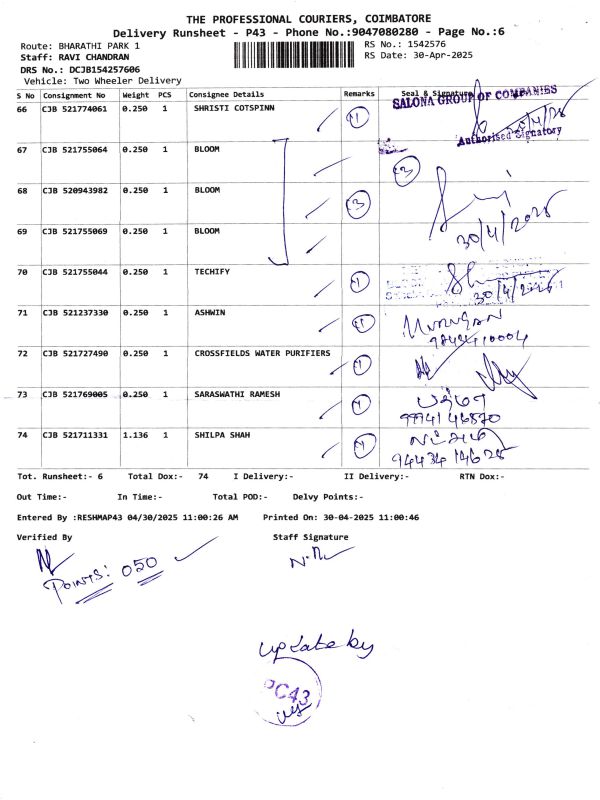 THE PROFESSIONAL COURIERS, COIMBATORE
Delivery Runsheet - P43 - Phone No.:9047080280 - Page No.:6
Route: BHARATHI PARK 1 RS No.: 1542576
Staff: RAVI CHANDRAN RS Date: 30-Apr-2025
DRS No.: DCJB154257606
Vehicle: Two Wheeler Delivery
S No Consignment No Weight PCS Consignee Details Remarks Seal & Signature
SALONA GROUP OF COMPANIES
66 CJB 521774061 0.250 1 SHRISTI COTSPINN 1
Authorised Signatory
67 CJB 521755064 0.250 1 BLOOM 3
68 CJB 520943982 0.250 1 BLOOM 3
30/4/2025
69 CJB 521755069 0.250 1 BLOOM
70 CJB 521755044 0.250 1 TECHIFY 1
30/4/2025
71 CJB 521237330 0.250 1 ASHWIN 1 MURUGAN
9844410004
72 CJB 521727490 0.250 1 CROSSFIELDS WATER PURIFIERS 1
73 CJB 521769005 0.250 1 SARASWATHI RAMESH 1
9994146870
74 CJB 521711331 1.136 1 SHILPA SHAH 1
9443414628
Tot. Runsheet:- 6 Total Dox:- 74 I Delivery:- II Delivery:- RTN Dox:-
Out Time:- In Time:- Total POD:- Delvy Points:-
Entered By :RESHMAP43 04/30/2025 11:00:26 AM Printed On: 30-04-2025 11:00:46
Verified By Staff Signature
POINTS: 050
update by
PC43